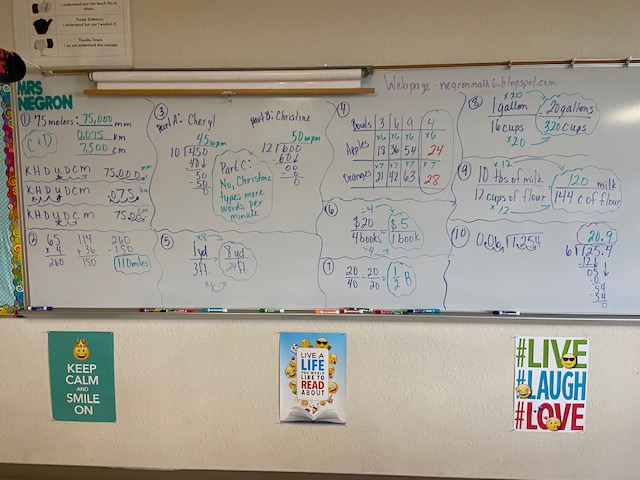 I understand and can teach this to others.
Thumb Sideways
I understand but can't explain it.
Thumbs Down
I do not understand this concept.
MRS
NEGRON
Webpage - negronmath6.blogspot.com
① 75 meters: 75,000 mm
0.075 km
7,500 cm
C+D
KHDUDCM 75,000. mm
KHDUDCM .075. km
KHDUDCM 75.00. cm
②
65
× 4
260
114
+ 36
150
260
- 150
110 miles
③
Part A: Cheryl
45 wpm
10 √450
40↓
50
-50
0
Part B: Christine
50 wpm
12 √600
60↓
00
0
0
Part C:
No, Christine
types more
words per
minute
④
Bowls 3 6 9 4
×6 ×6 ×6 ×6
Apples 18 36 54 24
×7 ×7 ×7 ×7
Oranges 21 42 63 28
⑤
×8
1yd = 8yd
3ft 24ft
×8
⑥
÷4
$20 = $5
4 books 1 book
÷4
⑦
20 ÷ 20 = 1 B
40 ÷ 20 2
⑧
×20
1 gallon = 20 gallons
16 cups 320 cups
×20
⑨
×12
10 tbs of milk = 120 milk
12 cups of flour 144 c of flour
×12
⑩
0.06. √1.25.4
20.9
6 √125.4
-12↓
05
-0
54
-54
0
KEEP
CALM
AND
SMILE
ON
LIVE A
LIFE
YOU WOULD
LIKE TO
READ
ABOUT
#LIVE
#LAUGH
#LOVE